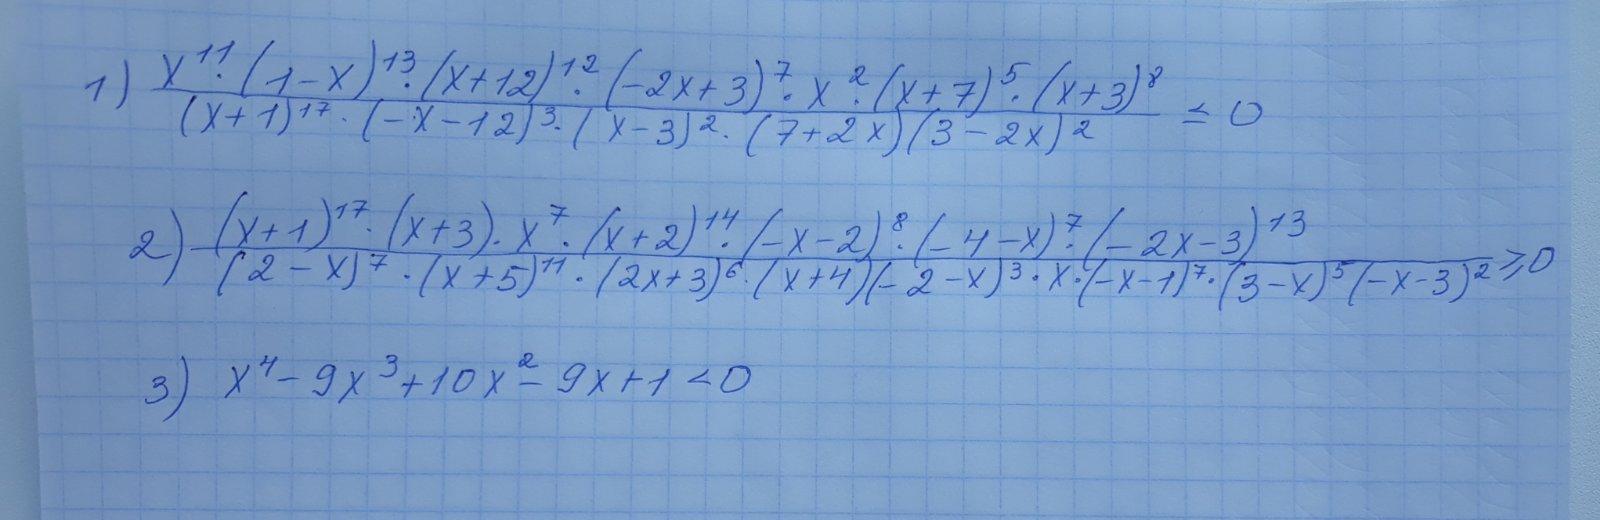 1) x¹¹·(1-x)¹³·(x+12)¹²·(-2x+3)⁷·x²·(x+7)⁵·(x+3)⁸
(x+1)¹⁷·(-x-12)³·(x-3)²·(7+2x)(3-2x)² ≤ 0
2) (x+1)¹⁷·(x+3)·x⁷·(x+2)¹⁴·(-x-2)⁸·(-4-x)⁷·(-2x-3)¹³
(2-x)⁷·(x+5)¹¹·(2x+3)⁶·(x+4)(-2-x)³·x·(-x-1)⁷·(3-x)⁵(-x-3)² ≥0
3) x⁴-9x³+10x²-9x+1<0